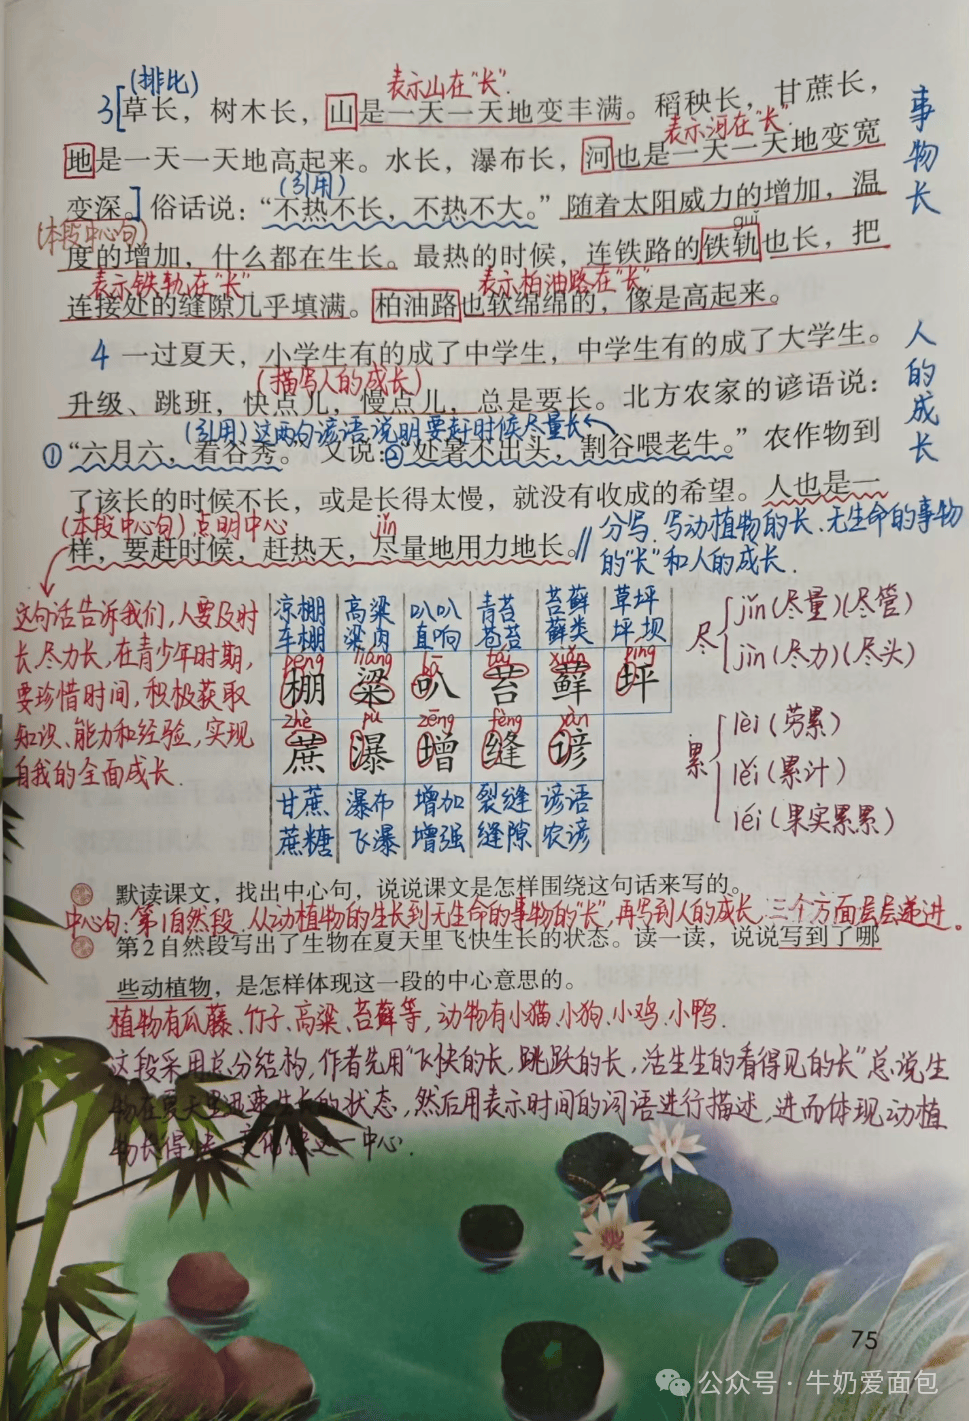 (排比)
表示山在"长".
3[草长，树木长，山是一天一天地变丰满。稻秧长，甘蔗长，
表示河在"长".
地是一天一天地高起来。水长，瀑布长，河也是一天一天地变宽
(引用)
变深。]俗话说：“不热不长，不热不大。”随着太阳威力的增加，温
(本段中心句)
guǐ
度的增加，什么都在生长。最热的时候，连铁路的铁轨也长，把
表示铁轨在"长"
表示柏油路在"长".
连接处的缝隙几乎填满。柏油路也软绵绵的，像是高起来。
事物长
4 一过夏天，小学生有的成了中学生，中学生有的成了大学生。
(描写人的成长)
升级、跳班，快点儿，慢点儿，总是要长。北方农家的谚语说：
(引用)这两句谚语说明要赶时候尽量长
①“六月六，看谷秀。 又说：②处暑不出头，割谷喂老牛。”农作物到
了该长的时候不长，或是长得太慢，就没有收成的希望。人也是一
(本段中心句)点明中心
jǐn
样，要赶时候，赶热天，尽量地用力地长。
人的成长
// 分写.写动植物的长、无生命的事物
的"长"和人的成长.
这句话告诉我们,人要及时
长,尽力长,在青少年时期,
要珍惜时间,积极获取
知识、能力和经验,实现
自我的全面成长.
凉棚 高粱 叭叭 青苔 苔藓 草坪
车棚 梁肉 直响 苍苔 藓类 坪坝
péng liáng bā tái xiǎn píng
棚 粱 叭 苔 藓 坪
zhè pù zēng fèng yàn
蔗 瀑 增 缝 谚
甘蔗 瀑布 增加 裂缝 谚语
蔗糖 飞瀑 增强 缝隙 农谚
尽
jǐn(尽量)(尽管)
jìn(尽力)(尽头)
累
lèi(劳累)
lěi(累计)
léi(果实累累)
默读课文，找出中心句，说说课文是怎样围绕这句话来写的。
中心句:第1自然段.从动植物的生长到无生命的事物的"长",再写到人的成长.三个方面层层递进。
第2自然段写出了生物在夏天里飞快生长的状态。读一读，说说写到了哪
些动植物，是怎样体现这一段的中心意思的。
植物有瓜藤、竹子、高粱、苔藓等,动物有小猫、小狗、小鸡、小鸭.
这段采用总分结构,作者先用"飞快的长,跳跃的长,活生生的看得见的长"总说生
物在夏天里迅速生长的状态,然后用表示时间的词语进行描述,进而体现动植
物长得快、变化 这一中心.
75
公众号·牛奶爱面包